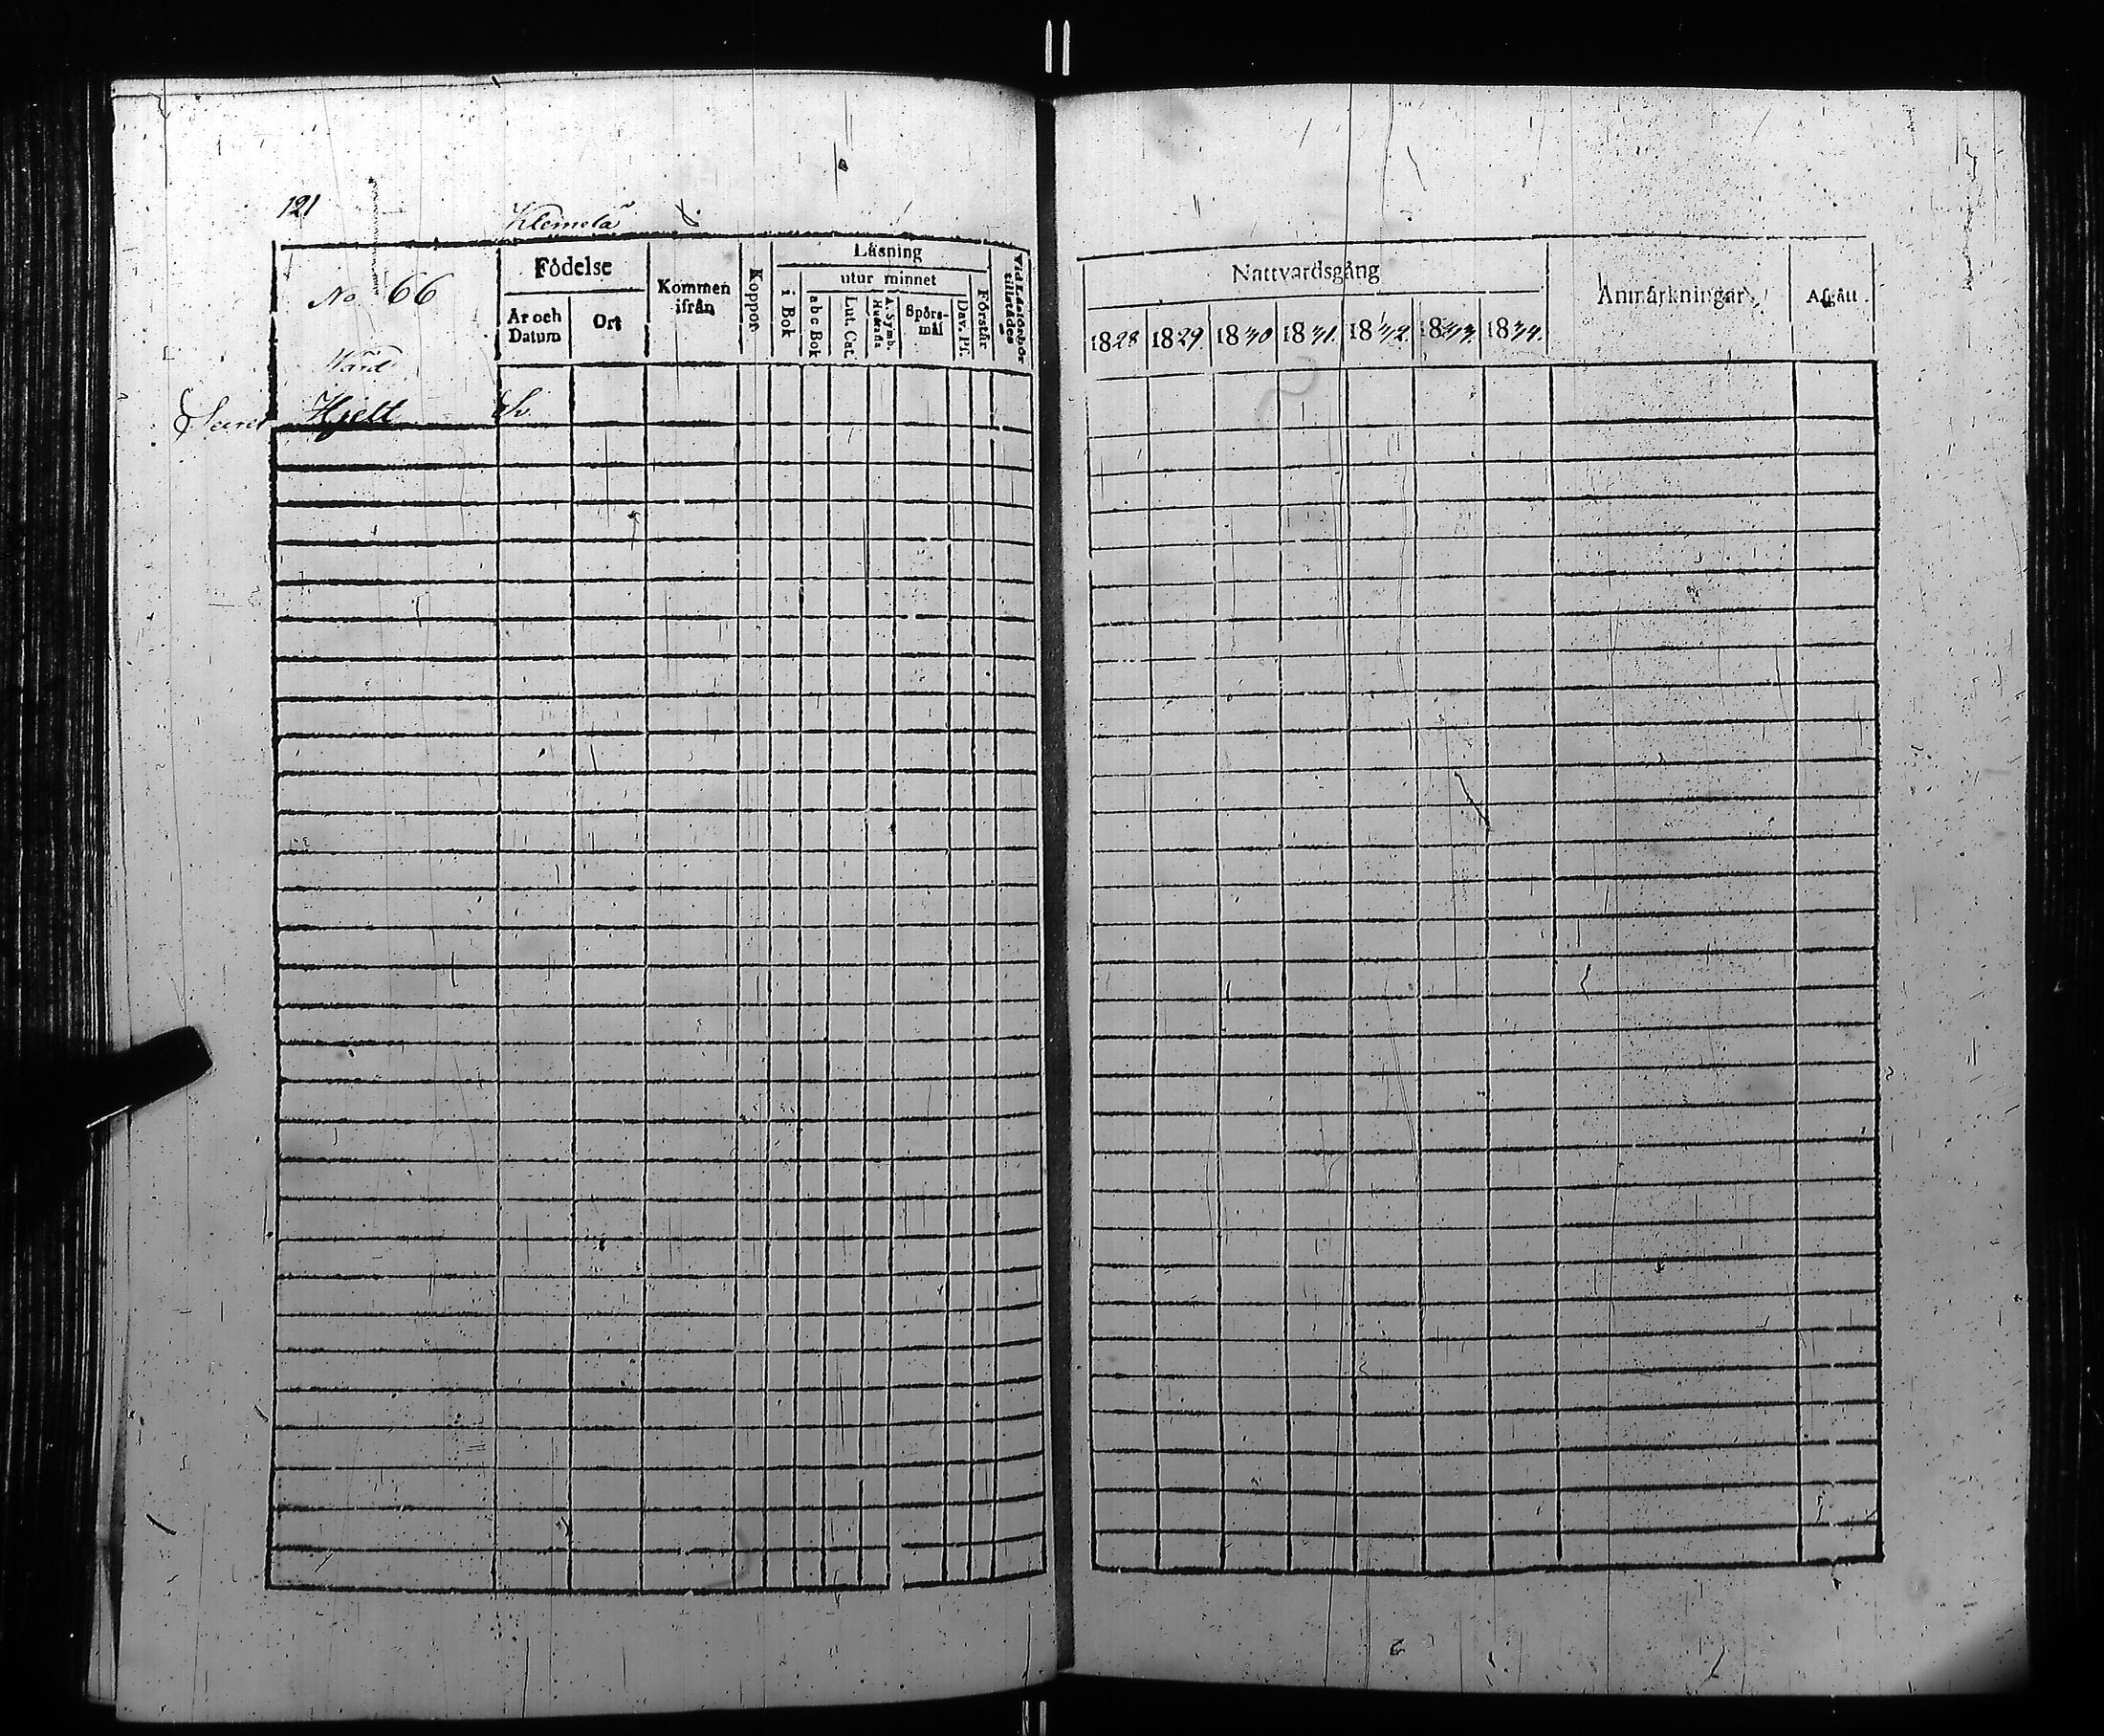 121
Klemelä
No 66
Födelse
År och Datum
Ort
Kommen ifrån
Koppor
Läsning
i Bok
utur minnet
abc Bok
Lut. Cat.
A. Symb. Hustafla
Spörs-mål
Dav. Ps.
Förstår
Vid Läsförhör tillstädes
Hjelt
Nattvardsgång
1828 1829 1830 1831 1832 1833 1834
Anmärkningar
Afgått